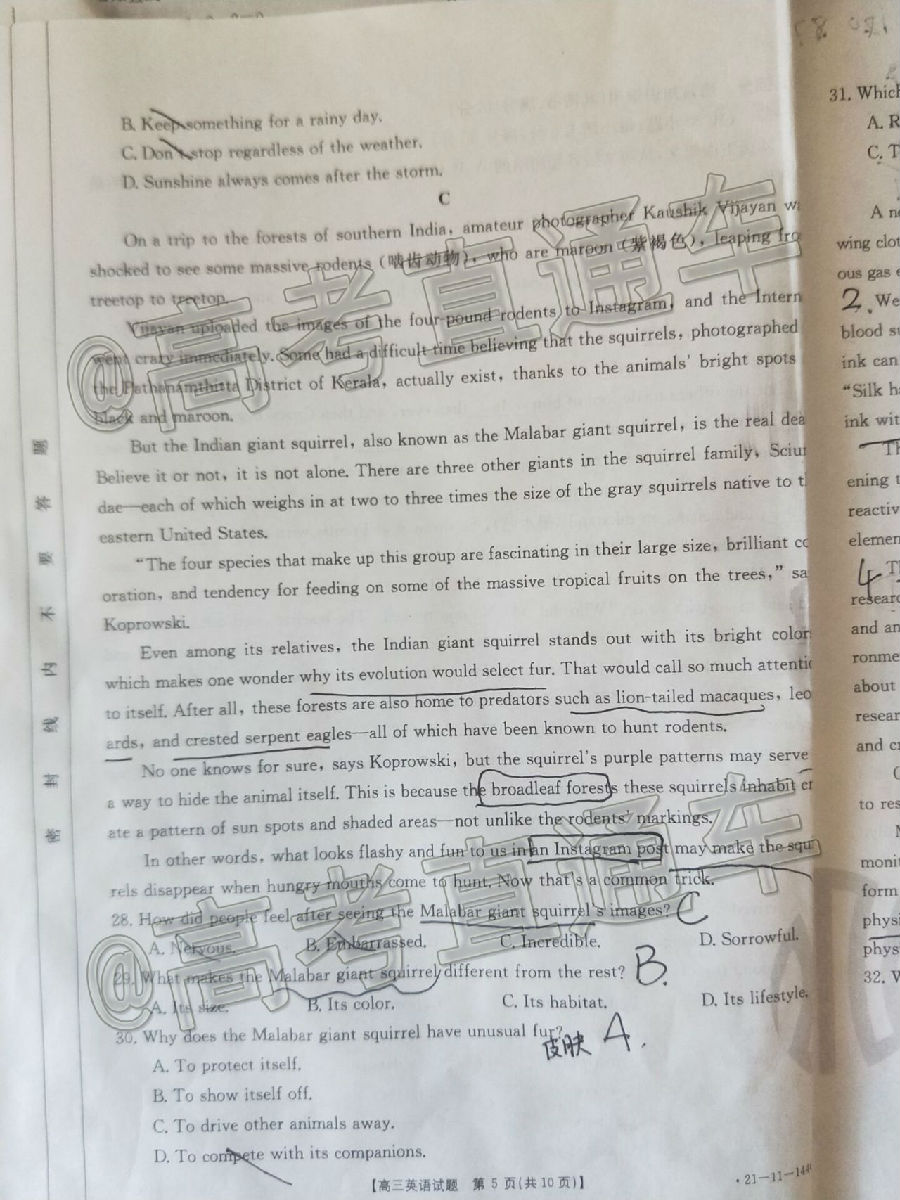 B. Keep something for a rainy day.
C. Don't stop regardless of the weather.
D. Sunshine always comes after the storm.
C
On a trip to the forests of southern India, amateur photographer Kaushik Vijayan
shocked to see some massive rodents (啮齿动物), who are maroon (紫褐色), leaping
treetop to treetop.
Vijayan uploaded the images of the four-pound rodents to Instagram, and the
went crazy immediately. Some had a difficult time believing that the squirrels, photographed
the Pathanamthitta District of Kerala, actually exist, thanks to the animals' bright spots
black and maroon.
But the Indian giant squirrel, also known as the Malabar giant squirrel, is the real
Believe it or not, it is not alone. There are three other giants in the squirrel family,
dae—each of which weighs in at two to three times the size of the gray squirrels native to
eastern United States.
"The four species that make up this group are fascinating in their large size, brilliant
oration, and tendency for feeding on some of the massive tropical fruits on the trees,"
Koprowski.
Even among its relatives, the Indian giant squirrel stands out with its bright
which makes one wonder why its evolution would select fur. That would call so much
to itself. After all, these forests are also home to predators such as lion-tailed macaques,
ards, and crested serpent eagles—all of which have been known to hunt rodents.
No one knows for sure, says Koprowski, but the squirrel's purple patterns may serve
a way to hide the animal itself. This is because the broadleaf forests these squirrels inhabit
ate a pattern of sun spots and shaded areas—not unlike the rodents' markings.
In other words, what looks flashy and fun to us in an Instagram post may make the
rels disappear when hungry mouths come to hunt. Now that's a common trick.
28. How did people feel after seeing the Malabar giant squirrel's images? C
A. Nervous. B. Embarrassed. C. Incredible. D. Sorrowful.
29. What makes the Malabar giant squirrel different from the rest? B.
A. Its size. B. Its color. C. Its habitat. D. Its lifestyle.
30. Why does the Malabar giant squirrel have unusual fur?
皮肤 A.
A. To protect itself.
B. To show itself off.
C. To drive other animals away.
D. To compete with its companions.
【高三英语试题 第 5 页(共 10 页)】
·21-11-14
密 封 线 内 不 要 答 题
@高考直通车
@高考直通车
31. Which
A. R
C. T
A
wing
ous gas
2. We
blood
ink can
"Silk
ink
ening
reactiv
elemen
4
researc
and an
ronme
about
resear
and
to res
monit
form
physi
phys
32.